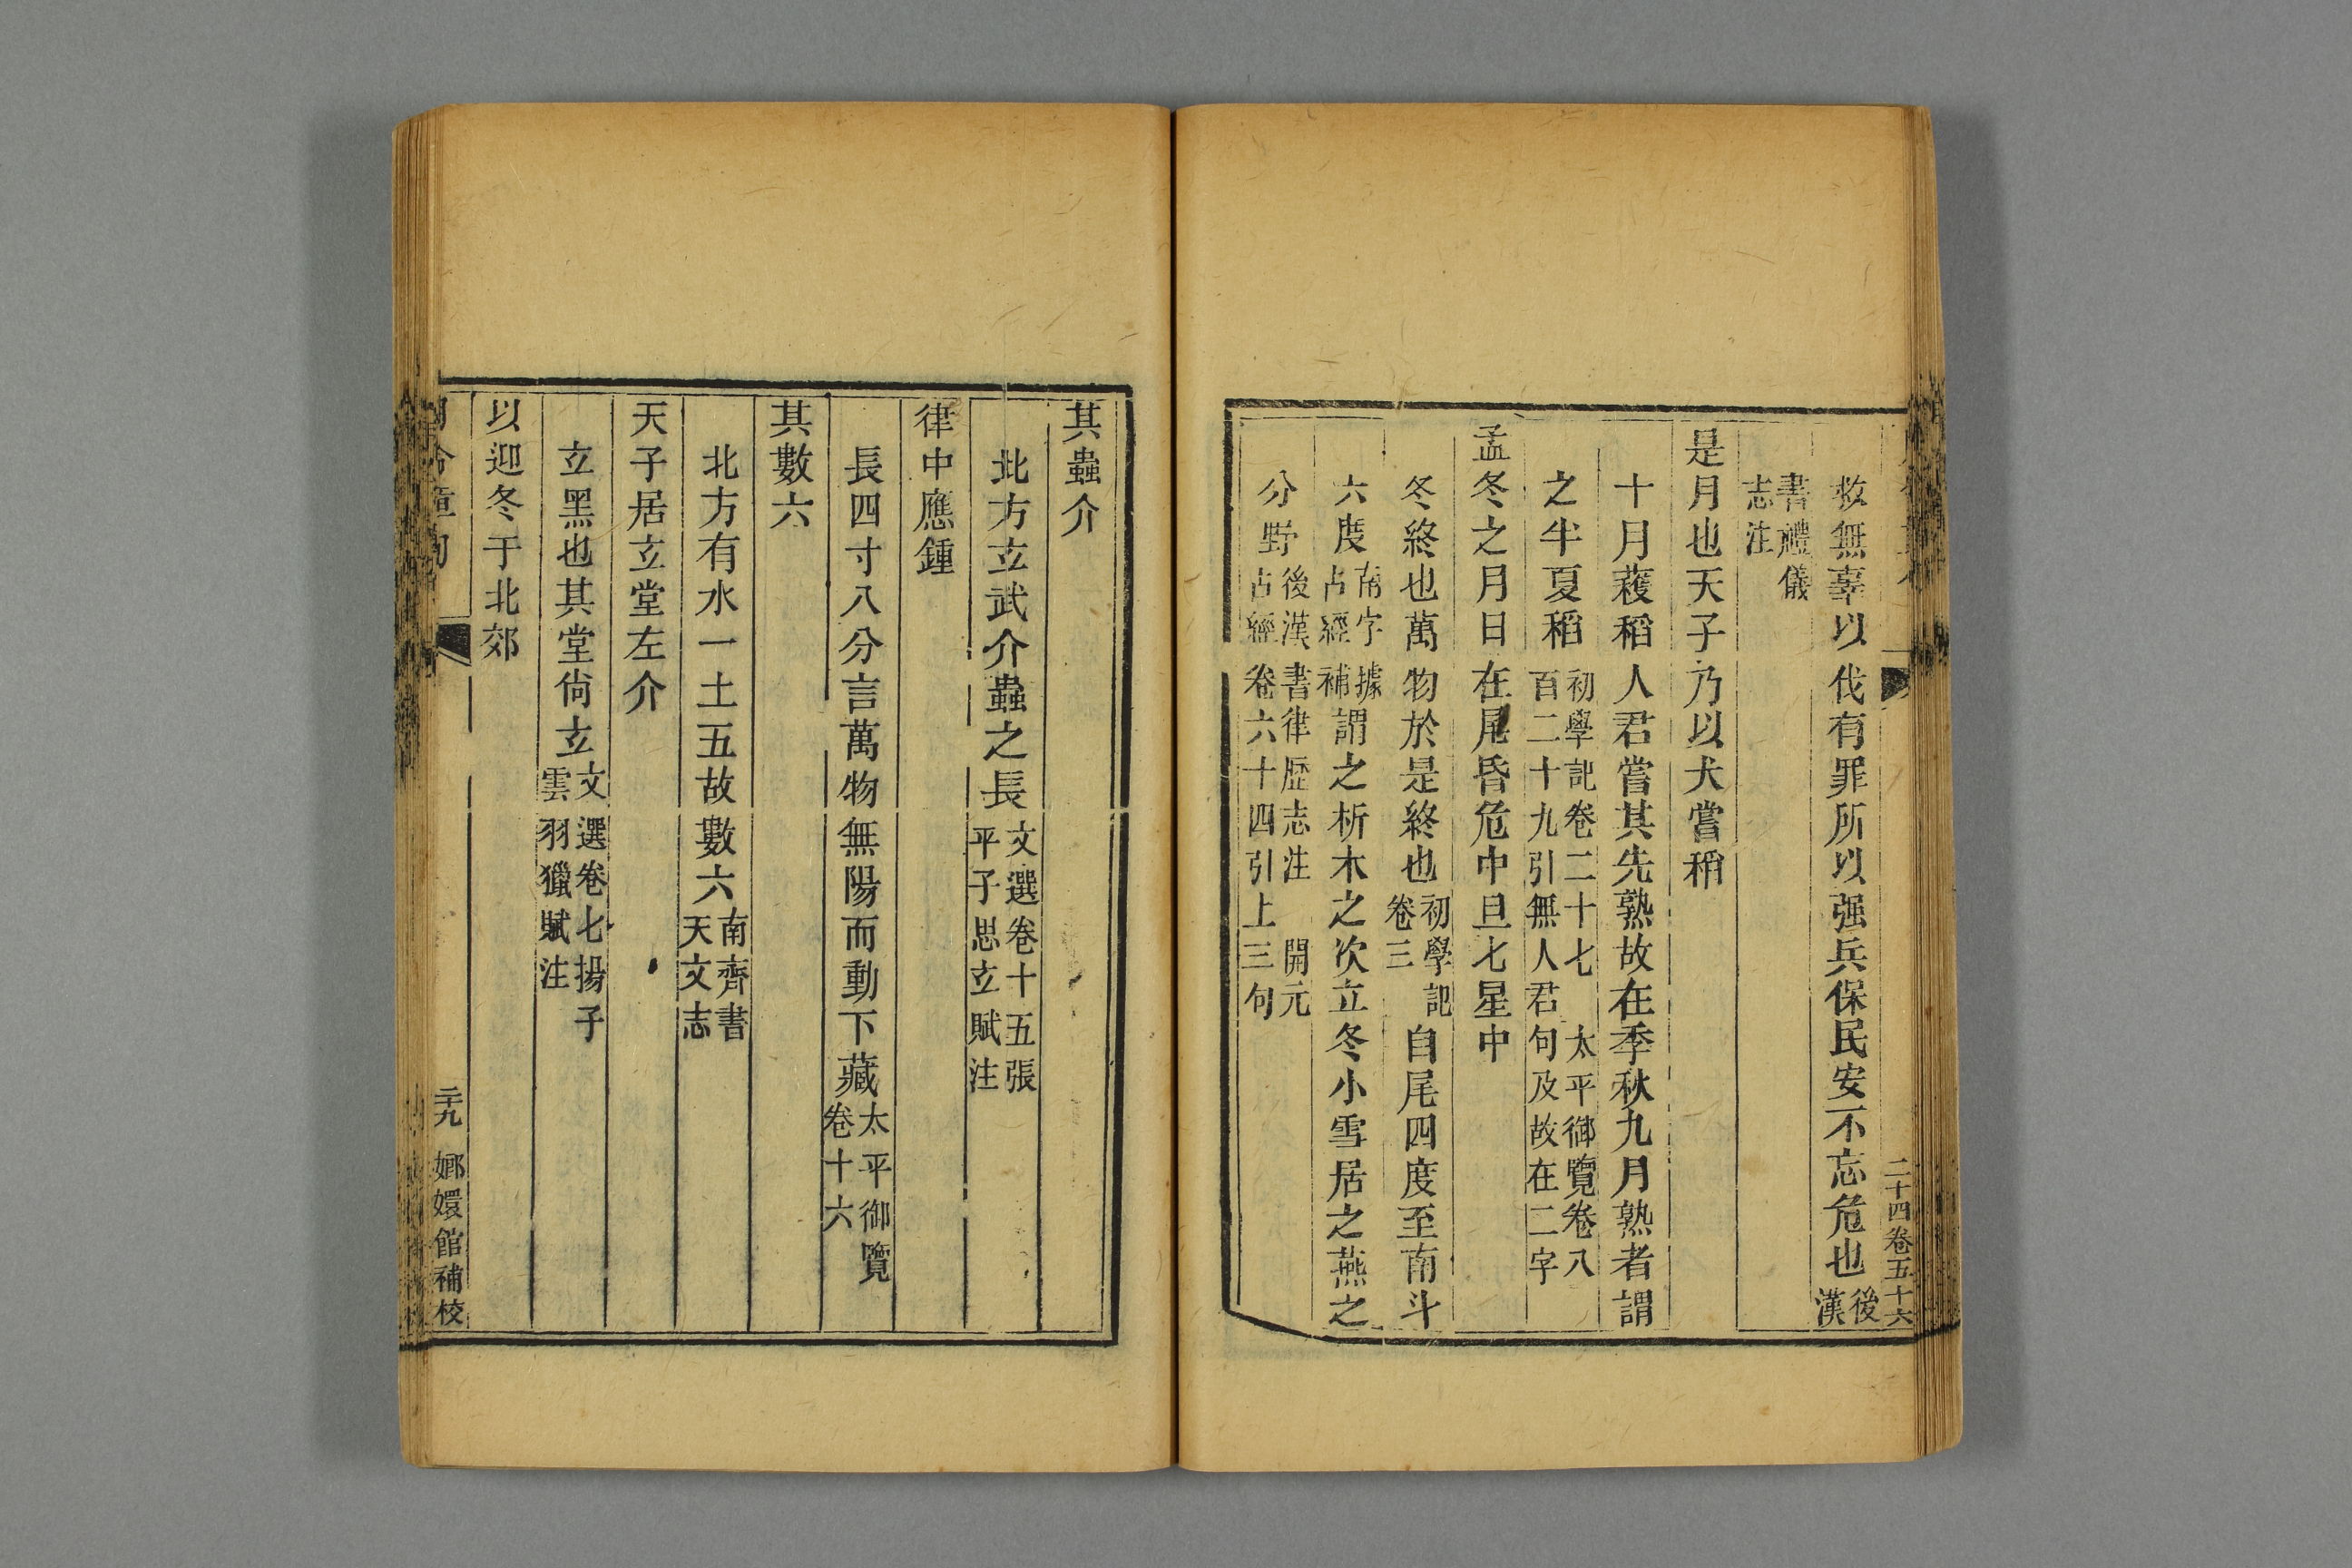 二十四卷五十六
救無辜以伐有罪所以强兵保民安不忘危也後漢
書禮儀志注
是月也天子乃以犬嘗稻
十月穫稻人君嘗其先熟故在季秋九月熟者謂
之半夏稻初學記卷二十七 太平御覽卷八百二十九引無人君句及故在二字
孟冬之月日在尾昏危中旦七星中
冬終也萬物於是終也初學記卷三自尾四度至南斗
六度南字據占經補謂之析木之次立冬小雪居之燕之
分野後漢書律歷志注 開元占經卷六十四引上三句
其蟲介
北方立武介蟲之長文選卷十五張平子思立賦注
律中應鍾
長四寸八分言萬物無陽而動下藏太平御覽卷十六
其數六
北方有水一土五故數六南齊書天文志
天子居立堂左介
立黑也其堂尙立文選卷七揚子雲羽獵賦注
以迎冬于北郊
月令章句 二十九 嫏嬛館補校